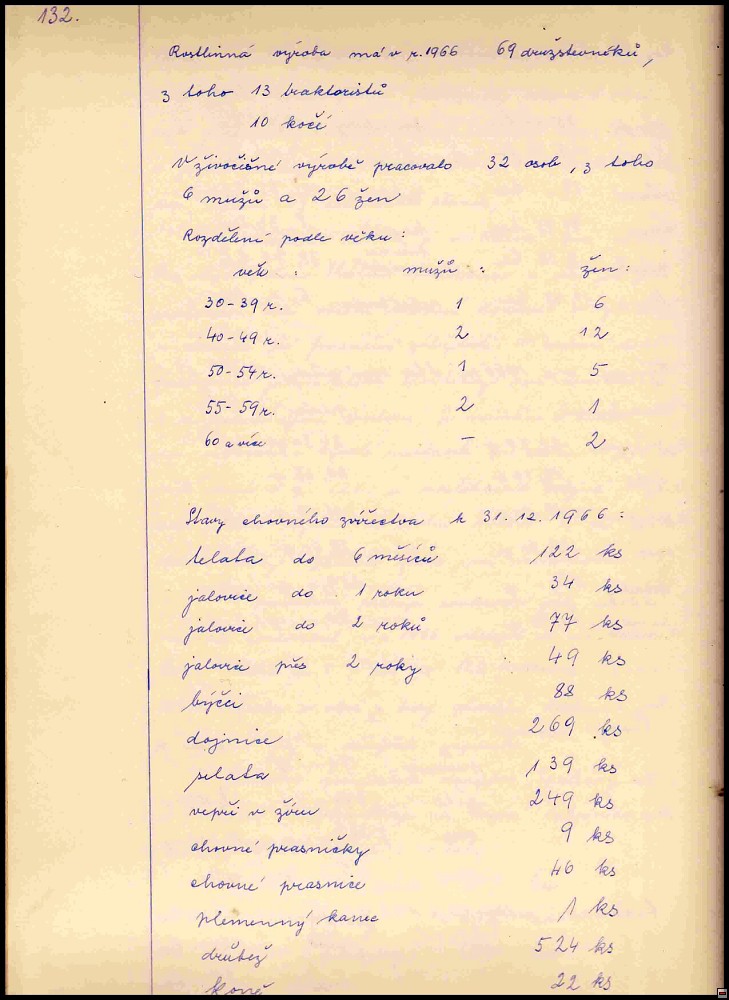 132.
Rostlinná výroba má v r. 1966 69 družstevníků,
z toho 13 traktoristů
10 kočí
V živočišné výrobě pracovalo 32 osob, z toho
6 mužů a 26 žen
Rozdělení podle věku:
věk : mužů : žen :
30-39 r. 1 6
40-49 r. 2 12
50-54 r. 1 5
55-59 r. 2 1
60 a více - 2
Stavy chovného zvířectva k 31.12.1966 :
telata do 6 měsíců 122 ks
jalovice do 1 roku 34 ks
jalovice do 2 roků 77 ks
jalovice přes 2 roky 49 ks
býčci 88 ks
dojnice 269 ks
selata 139 ks
vepři v žíru 249 ks
chovné prasničky 9 ks
chovné prasnice 46 ks
plemenný kanec 1 ks
drůbež 524 ks
koně 22 ks